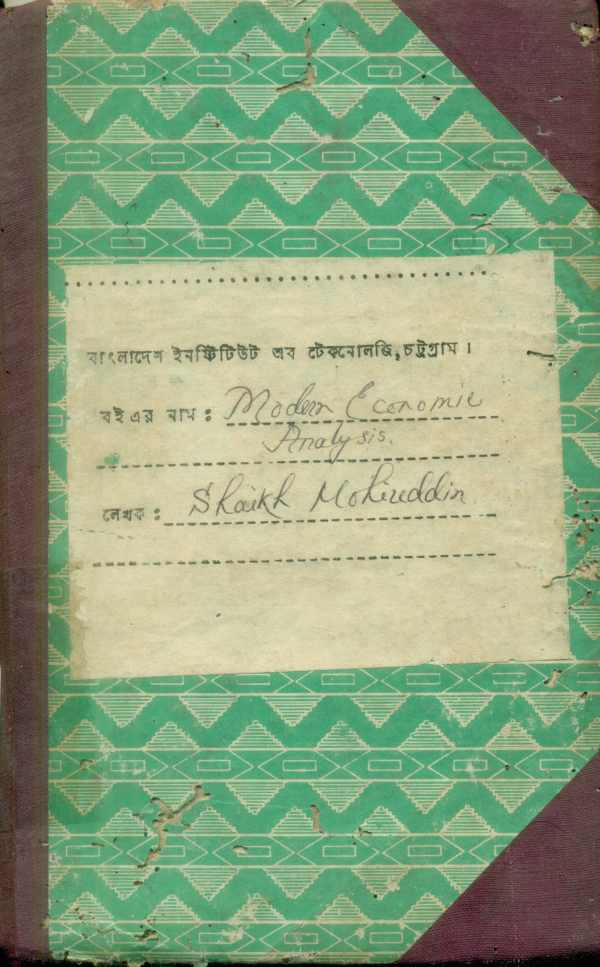 বাংলাদেশ ইনষ্টিটিউট অব টেকনোলজি, চট্টগ্রাম।
বই এর নাম : Modern Economic
Analysis.
লেখক : Shaikh Mohiuddin